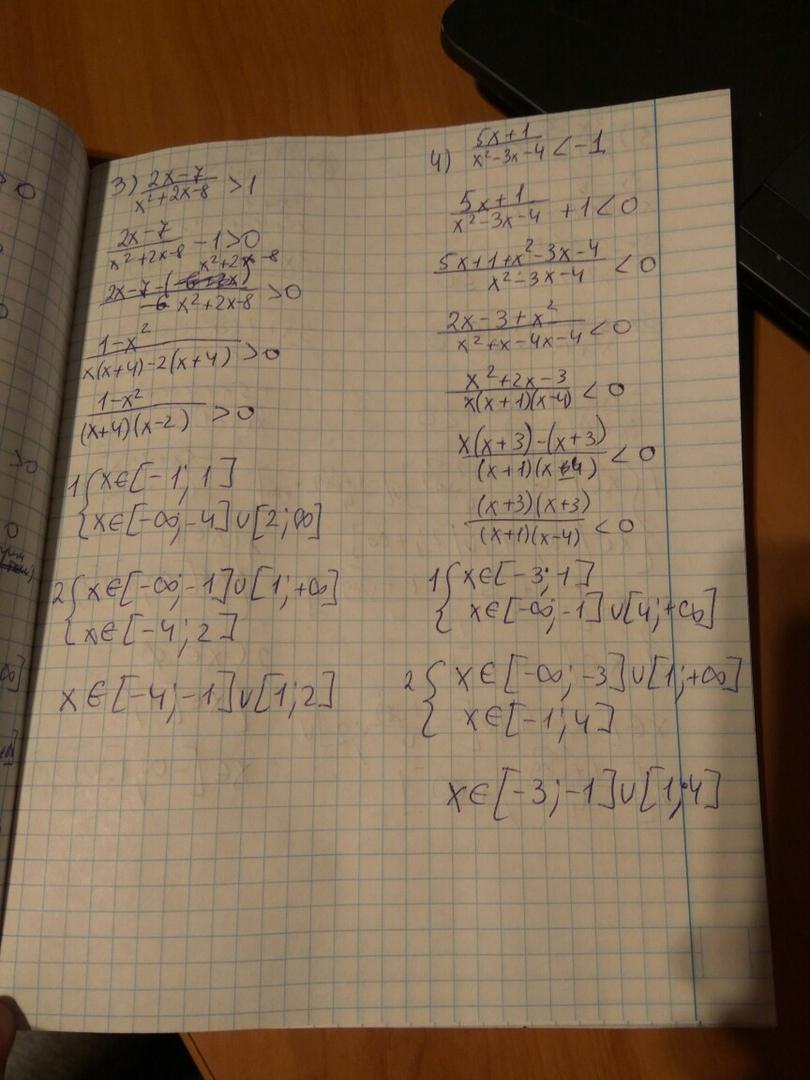 3) (2x-7)/(x²+2x-8) >1
(2x-7)/(x²+2x-8) -1>0
(2x-7-(x²+2x-8))/(x²+2x-8) >0
(1-x²)/(x(x+4)-2(x+4)) >0
(1-x²)/((x+4)(x-2)) >0
1 { x∈[-1; 1]
{ x∈[-∞;-4]∪[2;∞]
2 { x∈[-∞;-1]∪[1;+∞]
{ x∈[-4; 2]
x∈[-4;-1]∪[1;2]
4) (5x+1)/(x²-3x-4) <-1
(5x+1)/(x²-3x-4) +1<0
(5x+1+x²-3x-4)/(x²-3x-4) <0
(2x-3+x²)/(x²+x-4x-4) <0
(x²+2x-3)/(x(x+1)(x-4)) <0
(x(x+3)-(x+3))/((x+1)(x-4)) <0
((x+3)(x+3))/((x+1)(x-4)) <0
1 { x∈[-3;1]
{ x∈[-∞;-1]∪[4;+∞]
2 { x∈[-∞;-3]∪[1;+∞]
{ x∈[-1;4]
x∈[-3;-1]∪[1;4]